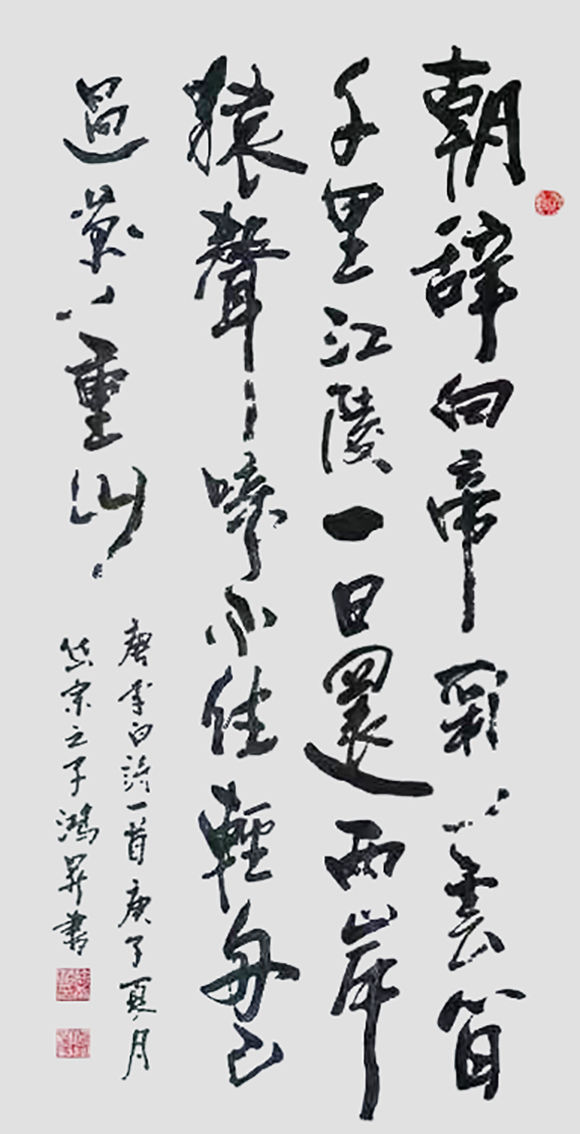 朝辭白帝彩雲間
千里江陵一日還兩岸
猿聲啼不住輕舟已
過萬重山
唐李白詩一首庚子夏月
岱宗之子鴻昇書